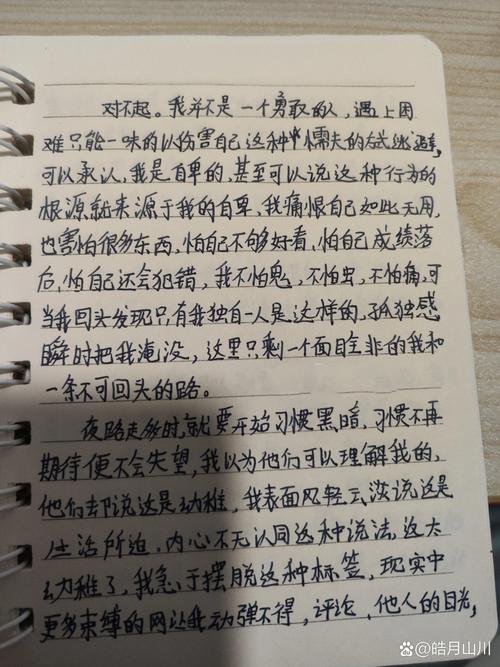 对不起。我并不是一个勇敢的人，遇上困
难只能一味的以伤害自己这种懦夫的方式逃避，
可以承认，我是自卑的，甚至可以说这种行为的
根源就来源于我的自卑，我痛恨自己如此无用，
也害怕很多东西，怕自己不够好看，怕自己成绩落
后，怕自己还会犯错，我不怕鬼，不怕虫，不怕痛，可
当我回头发现只有我独自一人是这样的，孤独感
瞬时把我淹没，这里只剩一个面目全非的我和
一条不可回头的路。
夜路走多时，就要开始习惯黑暗，习惯不再
期待便不会失望，我以为他们可以理解我的，
他们却说这是幼稚，我表面风轻云淡说这是
生活所迫，内心不无认同这种说法，这太
幼稚了，我急于摆脱这种标签，现实中
更多束缚的网让我动弹不得，评论，他人的目光，
@皓月山川